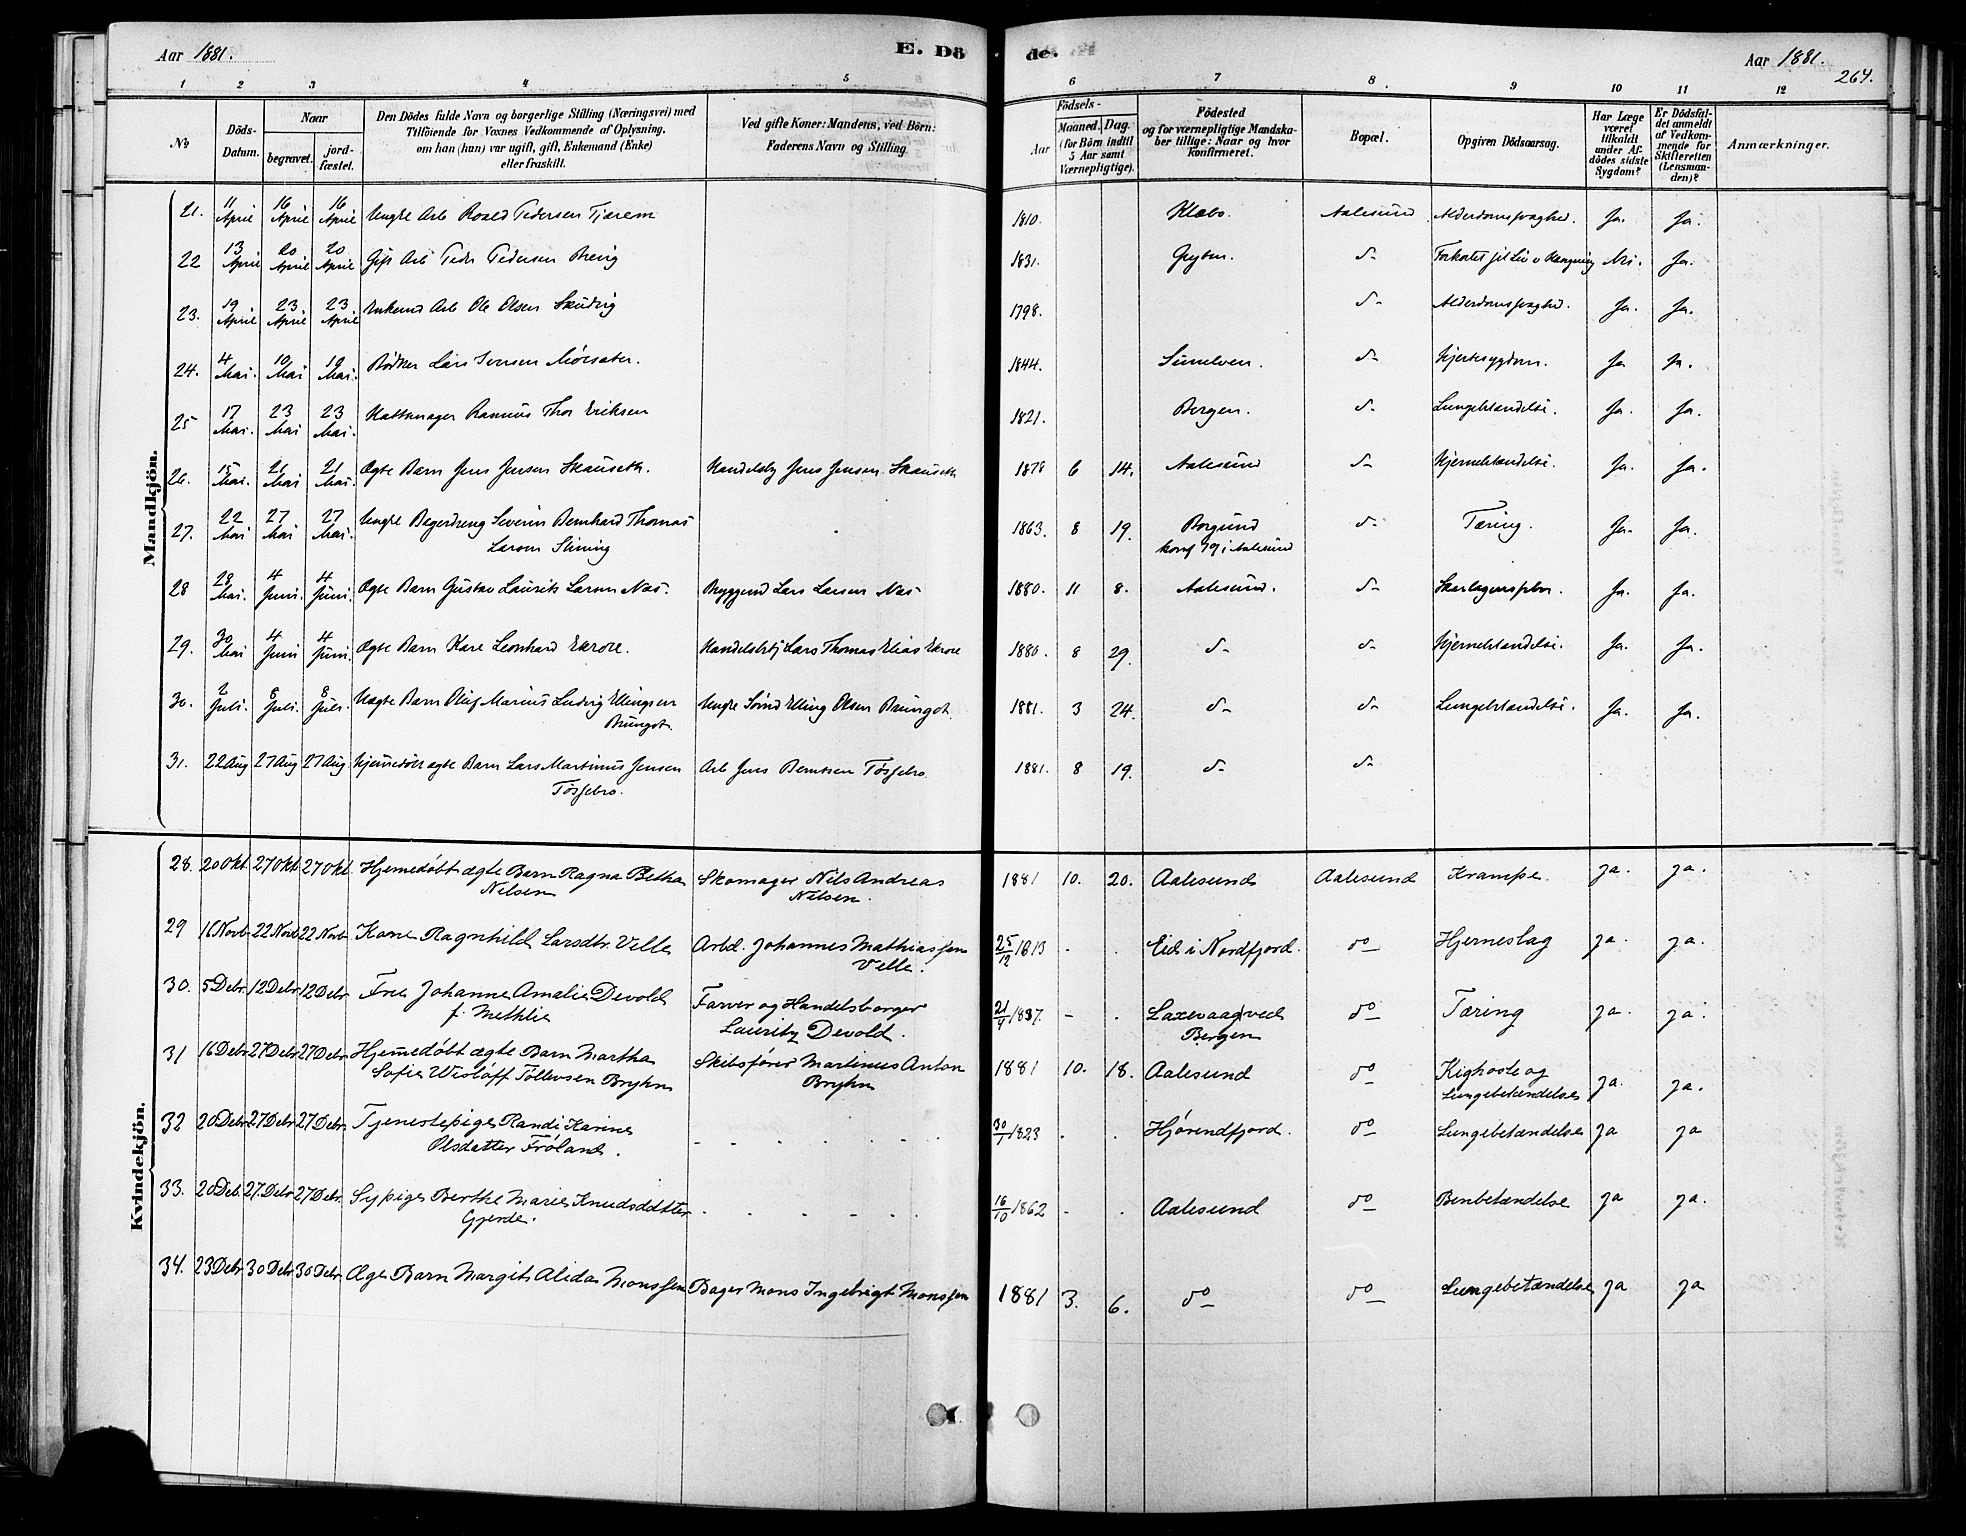 Aar 1881.
E. Dö
de.
Aar 1881.
264.
1 2 3 4 5 6 7 8 9 10 11 12
No
Döds-Datum.
Naar
begravet.
jord-fæstet.
Den Dödes fulde Navn og borgerlige Stilling (Næringsvei) med
Tilföiende for Voxnes Vedkommende af Oplysning,
om han (hun) var ugift, gift, Enkemand (Enke)
eller fraskilt.
Ved gifte Koner: Mandens, ved Börn:
Faderens Navn og Stilling.
Födsels-
Aar
Maaned.
Dag.
(for Börn indtil
5 Aar samt
Værnepligtige).
Födested
og for værnepligtige Mandska-
ber tillige: Naar og hvor
konfirmeret.
Bopæl.
Opgiven Dödsaarsag.
Har Læge
været
tilkaldt
under Af-
dödes sidste
Sygdom?
Er Dödsfal-
det anmeldt
af Vedkom-
mende for
Skifteretten
(Lensman-
den)?
Anmærkninger.
Mandkjön.
21. 11 April 16 April 16 April Ungk. Arb Roald Pedersen Tjærem 1810. Klæbo. Aalesund Alderdomssvaghed. Ja. Ja.
22 13 April 20 April 20 April Gift Arb Peder Pedersen Brevig 1831. Grytten. do Nei. Ja.
23. 19 April 23 April 23 April Enkemd Arb Ole Olsen Skudvig 1798. do Alderdomssvaghed. Ja. Ja.
24. 4 Mai. 10 Mai 10 Mai. Bødker Lars Iversen Mørsater. 1844. Sunelven. do Hjertesygdom. Ja Ja.
25 17 Mai. 23 Mai 23 Mai. Hattemager Rasmus Thor Eriksen 1821. Bergen. do Lungebetændelse. Ja. Ja.
26. 15 Mai. 21 Mai 21 Mai. Ægte Barn Jens Jensen Skauseth. Handelsby Jens Jensen Skauseth 1878 6 14. Aalesund do Hjernebetændelse. Ja. Ja.
27. 22 Mai 27 Mai 27 Mai. Ungk. Bagerdreng Severin Bernhard Thomas
Larsen Slining 1863. 8 19. Borgund
konf 79 i Aalesund do Tæring. Ja. Ja.
28 28 Mai. 4 Juni. 4 Juni. Ægte Barn Gustav Laurits Larsen Næs. Bryggemd Lars Larsen Næs 1880. 11 8. Aalesund. do Skarlagensfeber. Ja. Ja.
29. 30 Mai 4 Juni 4 Juni. Ægte Barn Kare Leonhard Ekroe. Handelsbetj Lars Thomas Elias Ekroe 1880. 8 29. do do Hjernebetændelse. Ja. Ja.
30. 2 Juli. 8 Juli. 8 Juli. Uægte Barn Oluf Marius Ludvig Ellingsen
Brungot. Ungk. Sømd Elling Olsen Brungot. 1881. 3 24. do do Lungebetændelse. Ja. Ja.
31. 22 Aug 27 Aug 27 Aug. Hjemmedøbt ægte Barn Lars Martinus Jensen
Tøssebro. Arb Jens Berntsen Tøssebro 1881. 8 19. do do
Kvindekjön.
28. 20 Okt 27 Okt 27 Okt Hjemmedøbt ægte Barn Ragna Betha
Nilsen Skomager Nils Andreas
Nilsen. 1881 10. 20. Aalesund Aalesund Krampe. ja. ja.
29 16 Novb 22 Novb 22 Novb Kone Ragnhild Larsdtr. Velle Arbd. Johannes Mathiassen
Velle. 25/12 1813 - . Eid i Nordfjord. do Hjerneslag ja. ja.
30. 5 Debr 12 Debr 12 Debr Frue Johanne Amalie Devold
f. Methlie Farver og Handelsborger
Lauritz Devold. 21/4 1837. - . Laxevaag ved
Bergen do Tæring ja. ja.
31 16 Debr 27 Debr 27 Debr. Hjemmedøbt ægte Barn Martha
Sofie Wisløff Tollevsen Bryhn Skibsfører Martinus Anton
Bryhn 1881 10. 18. Aalesund do Kighoste og
Lungebetændelse ja. ja.
32 20 Debr 27 Debr 27 Debr. Tjenestepige Randi Karine
Olsdatter Frøland. - - - - - 30/1 1823 . . Hjørendfjord. do Lungebetændelse ja ja
33. 20 Deb. 27. Debr 27 Debr. Sypige Berthe Marie Knudsdatter
Gjerde. - - - - - 16/10 1862 - . Aalesund do Benbetændelse ja ja.
34. 23 Debr 30 Debr 30 Debr. Æge Barn Margit Alida Monssen Bager Mons Ingebrigt Monssen 1881 3. 6. do do Lungebetændelse ja ja